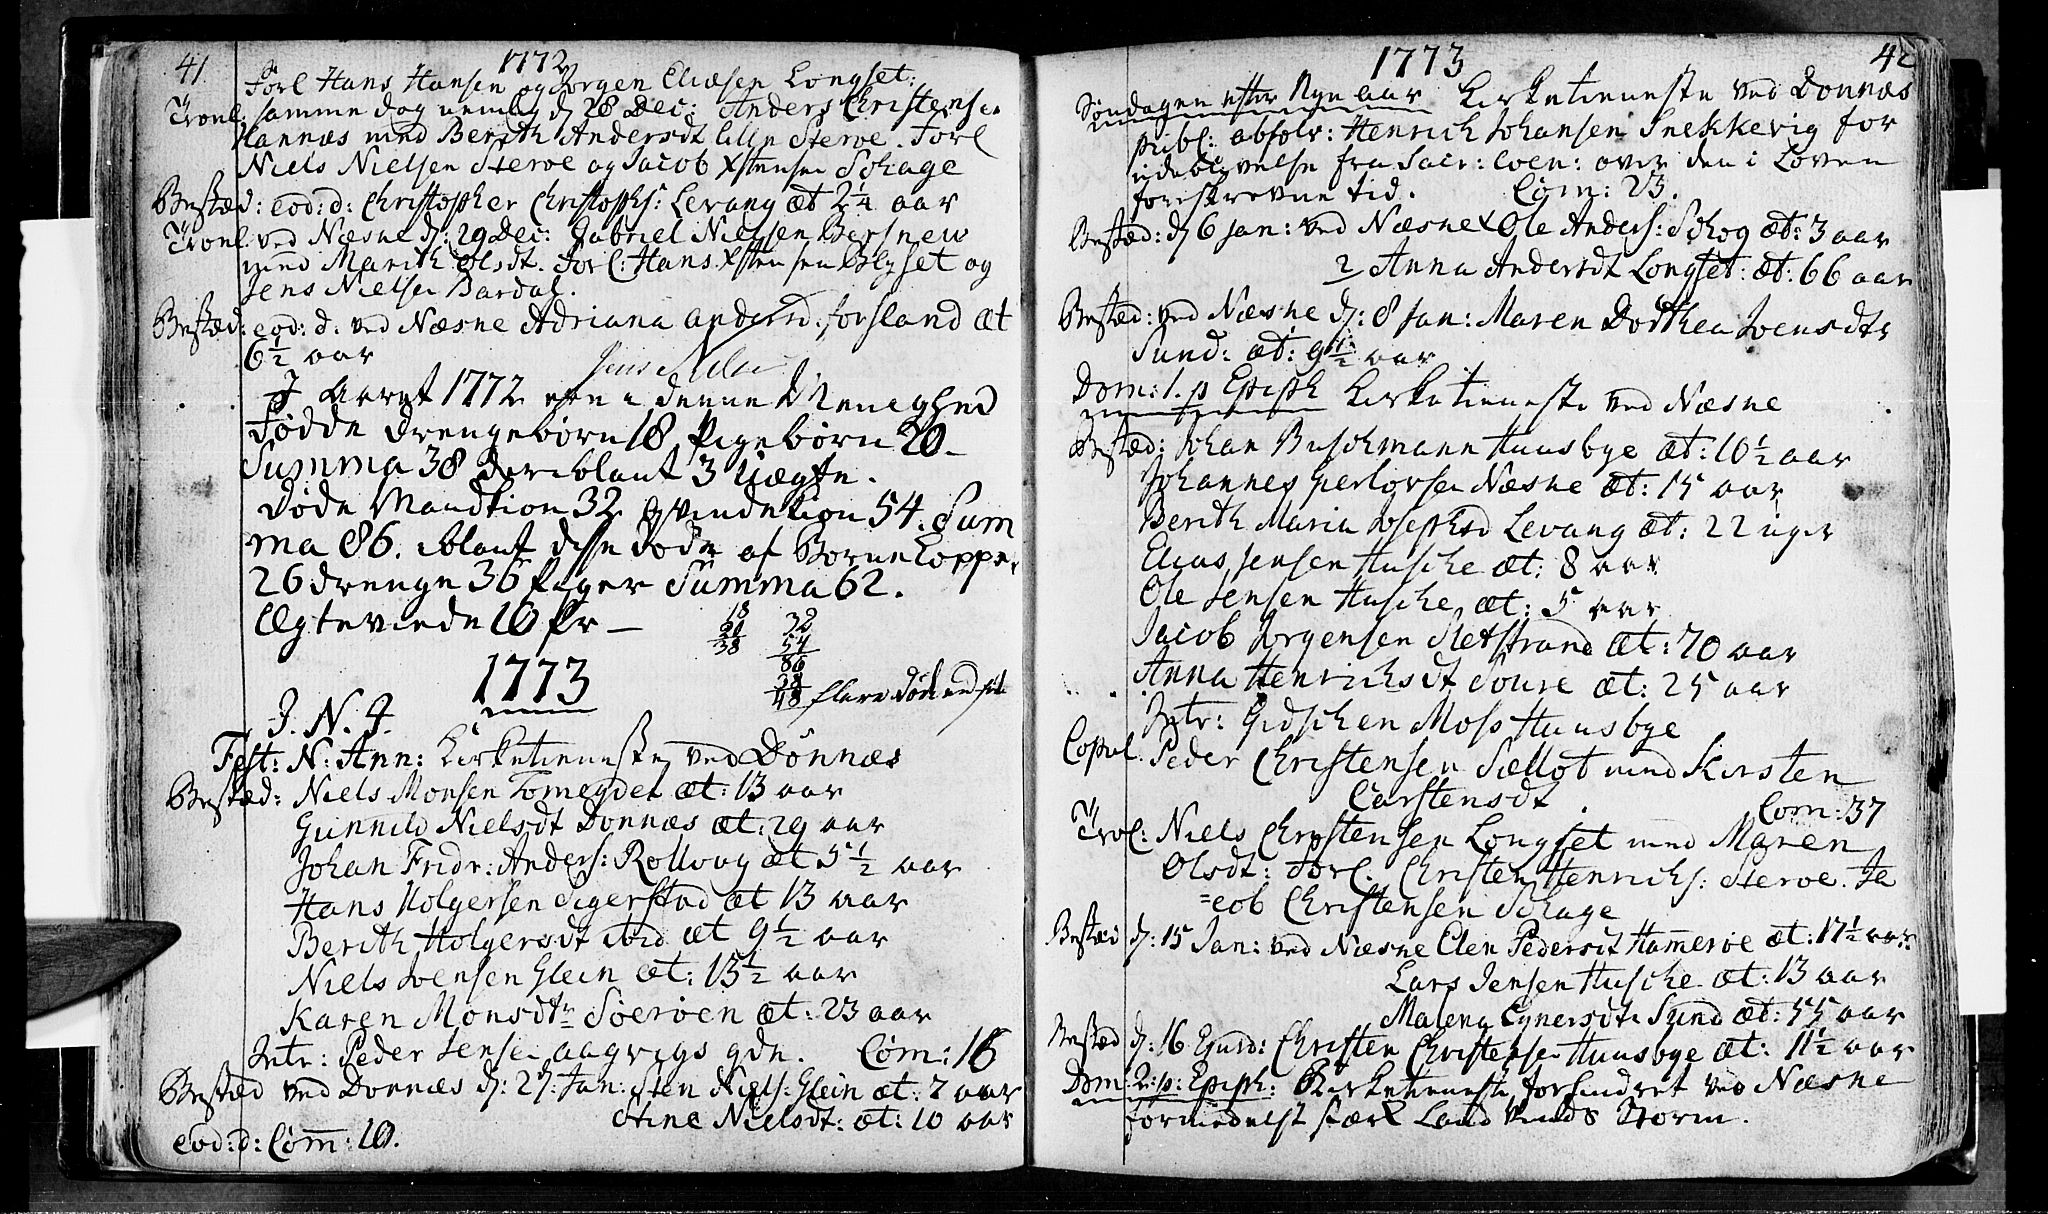 41
1772
Forl Hans Hansen og Jørgen Eliæsen Longset:
Trovl: samme dag nemlig d: 28 Dec: Anders Christensen
Hannæs med Berith Andersdt lille Sterøe. Forl
Niels Nielsen Sterøe og Jacob Xstensen Schage
Bested: eod: d: Christopher Christophs: Levang æt 2¼ aar
Trovl. ved Næsne d: 29 Dec: Gabriel Nielsen
med Marith Olsdt. Forl: Hans Xstensen og
Jens Nielsen Bardal.
Bested: eod: d: ved Næsne Adriana Andersd: Forsland æt
6½ aar
Jens Nielsen
I Aaret 1772 ere i denne Menighed
Fødde Drengebørn 18 Pigebørn 20
Summa 38 deriblant 3 Uægte.
Døde Mandkion 32 Qvindekion 54. Sum
ma 86. iblant disse døde af Børnekopper
26 drenge 36 Piger Summa 62.
Ægteviede 10 Pr
18
20
38
32
54
86
38
48 flere døde end fødte
1773
J. N. J.
Fest: N: Ann: Kirketieneste ved Dønnæs
Bested: Niels Monsen Tomegdet æt: 13 aar
Gunnild Nielsdt Dønnæs æt: 29 aar
Johan Fridr: Anders: Rolvog æt 5½ aar
Hans Holgersen Sigerstad æt 13 aar
Berith Holgersdt ibid æt 9½ aar
Niels Joensen Glein æt: 13½ aar
Karen Monsdtr Søerøen æt: 23 aar
Intr: Peder Jensen Aagvigs qde. Com: 16
Bested ved Dønnæs d: 2 Jan: Sten Niels: Glein æt: 7 aar
Ane Nielsdt: æt: 10 aar
eod: d: Com: 10.
42
1773
Søndagen efter Nyeaar Kirketieneste ved Dønnæs
publ: absolv: Henrich Johansen Snekkevig for
udeblivelse fra Sacr: Coen: over den i Loven
foreskrevne tid. Com: 23.
Bested: d 6 Jan: ved Næsne 1 Ole Anders: Schog æt: 3 aar
2 Anna Andersdt Longset: æt: 66 aar
Bested: ved Næsne d: 8 Jan: Maren Dorthea Joensdtr
Sund: æt: 9½ aar
Dom: 1. p Epiph Kirketieneste ved Næsne
Bested: Johan Buschmann Huusbye æt: 10½ aar
Johannes Gerlovsen Næsne æt: 15 aar
Berith Maria Josephsd Levang æt: 22 uger
Elias Jensen Husche æt: 8 aar
Ole Jensen Husche æt: 5 aar
Jacob Jørgensen Sletstrand æt: 70 aar
Anna Henrichsdt Soure æt: 25 aar
Intr: Gidschen Moss Huusbye
Copul. Peder Christensen med Kirsten
Carstensdt. Com: 37
Trol: Niels Christensen Longset med Maren
Olsdt: Forl. Christen Henrichs: Sterøe. Ja
=cob Christensen Schage
Bested d: 15 Jan: ved Næsne Elen Pedersdt Hamerøe æt: 17½ aar
Lars Jensen Husche æt: 13 aar
Malena Sund æt: 55 aar
Bested d: 16 Ejusd: Christen Christensen Huusbye æt: 11½ aar
Dom: 2: p: Epiph: Kirketieneste forhindret ved Næsne
formedelst stærk Land Vinds Storm.